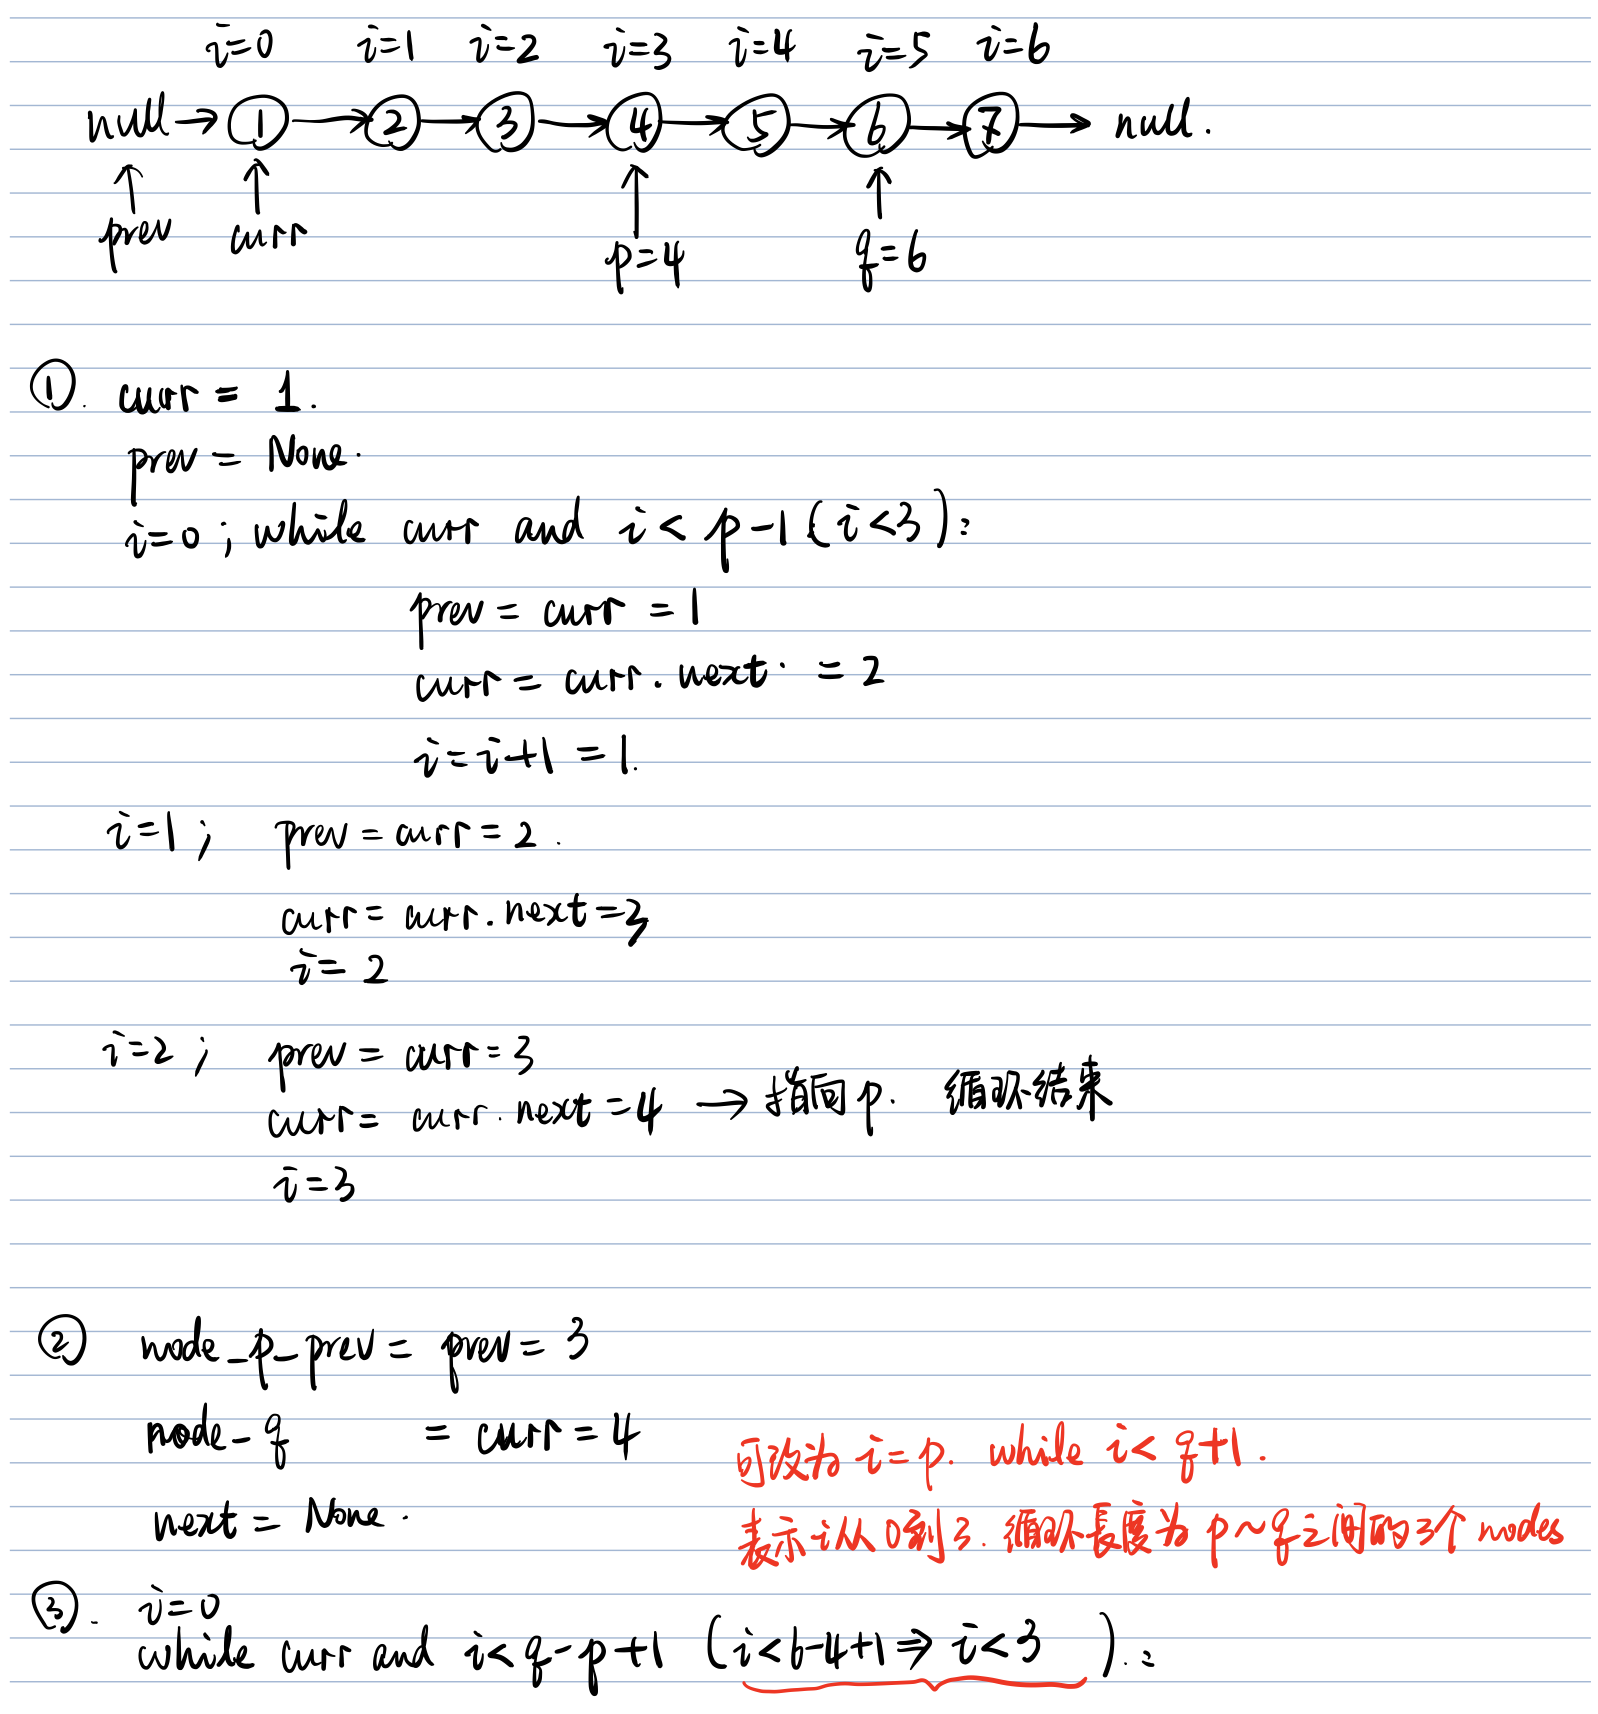 i=0 i=1 i=2 i=3 i=4 i=5 i=6
null → ① → ② → ③ → ④ → ⑤ → ⑥ → ⑦ → null.
↑ ↑ ↑ ↑
prev curr p=4 q=6
①. curr = 1.
prev = None.
i=0; while curr and i < p-1 (i<3):
prev = curr = 1
curr = curr.next. = 2
i=i+1 = 1.
i=1; prev = curr = 2.
curr = curr.next = 3
i= 2
i=2; prev = curr = 3
curr = curr.next = 4 → 指向p. 循环结束
i=3
② node_p_prev = prev = 3
node_q = curr = 4
可改为 i=p. while i< q+1.
next = None.
表示i从0到3. 循环長度为 p~q之间的3个 nodes
③. i=0
while curr and i< q-p+1 (i<6-4+1 ⇒ i<3 ).: